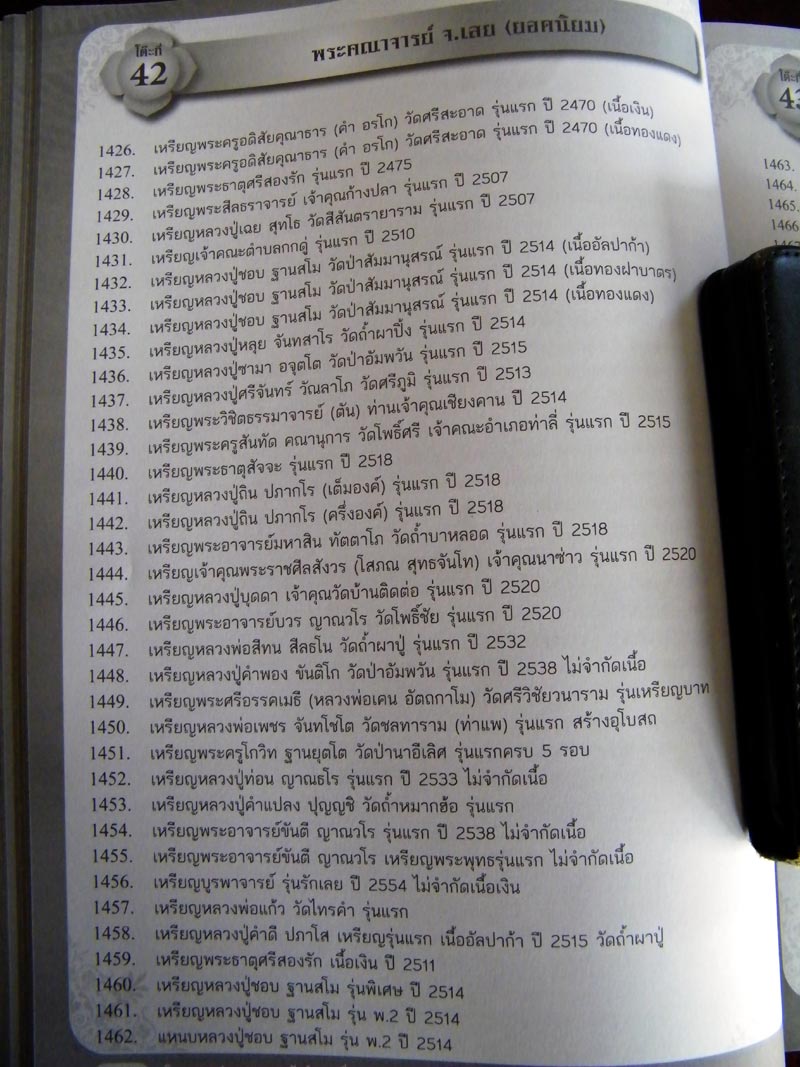 โต๊ะที่
42
พระคณาจารย์ จ.เลย (ยอดนิยม)
1426. เหรียญพระครูอดิสัยคุณาธาร (คำ อรโก) วัดศรีสะอาด รุ่นแรก ปี 2470 (เนื้อเงิน)
1427. เหรียญพระครูอดิสัยคุณาธาร (คำ อรโก) วัดศรีสะอาด รุ่นแรก ปี 2470 (เนื้อทองแดง)
1428. เหรียญพระธาตุศรีสองรัก รุ่นแรก ปี 2475
1429. เหรียญพระสีลธราจารย์ เจ้าคุณก้างปลา รุ่นแรก ปี 2507
1430. เหรียญหลวงปู่เฉย สุทโธ วัดสีสันตรายาราม รุ่นแรก ปี 2507
1431. เหรียญเจ้าคณะตำบลกกดู่ รุ่นแรก ปี 2510
1432. เหรียญหลวงปู่ชอบ ฐานสโม วัดป่าสัมมานุสรณ์ รุ่นแรก ปี 2514 (เนื้ออัลปาก้า)
1433. เหรียญหลวงปู่ชอบ ฐานสโม วัดป่าสัมมานุสรณ์ รุ่นแรก ปี 2514 (เนื้อทองฝาบาตร)
1434. เหรียญหลวงปู่ชอบ ฐานสโม วัดป่าสัมมานุสรณ์ รุ่นแรก ปี 2514 (เนื้อทองแดง)
1435. เหรียญหลวงปู่หลุย จันทสาโร วัดถ้ำผาบิ้ง รุ่นแรก ปี 2514
1436. เหรียญหลวงปู่ซามา อจุตโต วัดป่าอัมพวัน รุ่นแรก ปี 2515
1437. เหรียญหลวงปู่ศรีจันทร์ วัณลาโภ วัดศรีภูมิ รุ่นแรก ปี 2513
1438. เหรียญพระวิชิตธรรมาจารย์ (ตัน) ท่านเจ้าคุณเชียงคาน ปี 2514
1439. เหรียญพระครูสันทัด คณานุการ วัดโพธิ์ศรี เจ้าคณะอำเภอท่าลี่ รุ่นแรก ปี 2515
1440. เหรียญพระธาตุสัจจะ รุ่นแรก ปี 2518
1441. เหรียญหลวงปู่ถิน ปภากโร (เต็มองค์) รุ่นแรก ปี 2518
1442. เหรียญหลวงปู่ถิน ปภากโร (ครึ่งองค์) รุ่นแรก ปี 2518
1443. เหรียญพระอาจารย์มหาสิน ทัตตาโภ วัดถ้ำบาหลอด รุ่นแรก ปี 2518
1444. เหรียญเจ้าคุณพระราชศีลสังวร (โสภณ สุทธจันโท) เจ้าคุณนาซ่าว รุ่นแรก ปี 2520
1445. เหรียญหลวงปู่บุดดา เจ้าคุณวัดบ้านติดต่อ รุ่นแรก ปี 2520
1446. เหรียญพระอาจารย์บวร ญาณวโร วัดโพธิ์ชัย รุ่นแรก ปี 2520
1447. เหรียญหลวงพ่อสีทน สีลธโน วัดถ้ำผาปู่ รุ่นแรก ปี 2532
1448. เหรียญหลวงปู่คำพอง ขันติโก วัดป่าอัมพวัน รุ่นแรก ปี 2538 ไม่จำกัดเนื้อ
1449. เหรียญพระศรีอรรคเมธี (หลวงพ่อเคน อัตถกาโม) วัดศรีวิชัยวนาราม รุ่นเหรียญบาท
1450. เหรียญหลวงพ่อเพชร จันทโชโต วัดชลทาราม (ท่าแพ) รุ่นแรก สร้างอุโบสถ
1451. เหรียญพระครูโกวิท ฐานยุตโต วัดป่านาอีเลิศ รุ่นแรกครบ 5 รอบ
1452. เหรียญหลวงปู่ท่อน ญาณธโร รุ่นแรก ปี 2533 ไม่จำกัดเนื้อ
1453. เหรียญหลวงปู่คำแปลง ปุญญชิ วัดถ้ำหมากฮ้อ รุ่นแรก
1454. เหรียญพระอาจารย์ขันตี ญาณวโร รุ่นแรก ปี 2538 ไม่จำกัดเนื้อ
1455. เหรียญพระอาจารย์ขันตี ญาณวโร เหรียญพระพุทธรุ่นแรก ไม่จำกัดเนื้อ
1456. เหรียญบูรพาจารย์ รุ่นรักเลย ปี 2554 ไม่จำกัดเนื้อเงิน
1457. เหรียญหลวงพ่อแก้ว วัดไทรคำ รุ่นแรก
1458. เหรียญหลวงปู่คำดี ปภาโส เหรียญรุ่นแรก เนื้ออัลปาก้า ปี 2515 วัดถ้ำผาปู่
1459. เหรียญพระธาตุศรีสองรัก เนื้อเงิน ปี 2511
1460. เหรียญหลวงปู่ชอบ ฐานสโม รุ่นพิเศษ ปี 2514
1461. เหรียญหลวงปู่ชอบ ฐานสโม รุ่น พ.2 ปี 2514
1462. แหนบหลวงปู่ชอบ ฐานสโม รุ่น พ.2 ปี 2514
1463.
1464.
1465.
1466